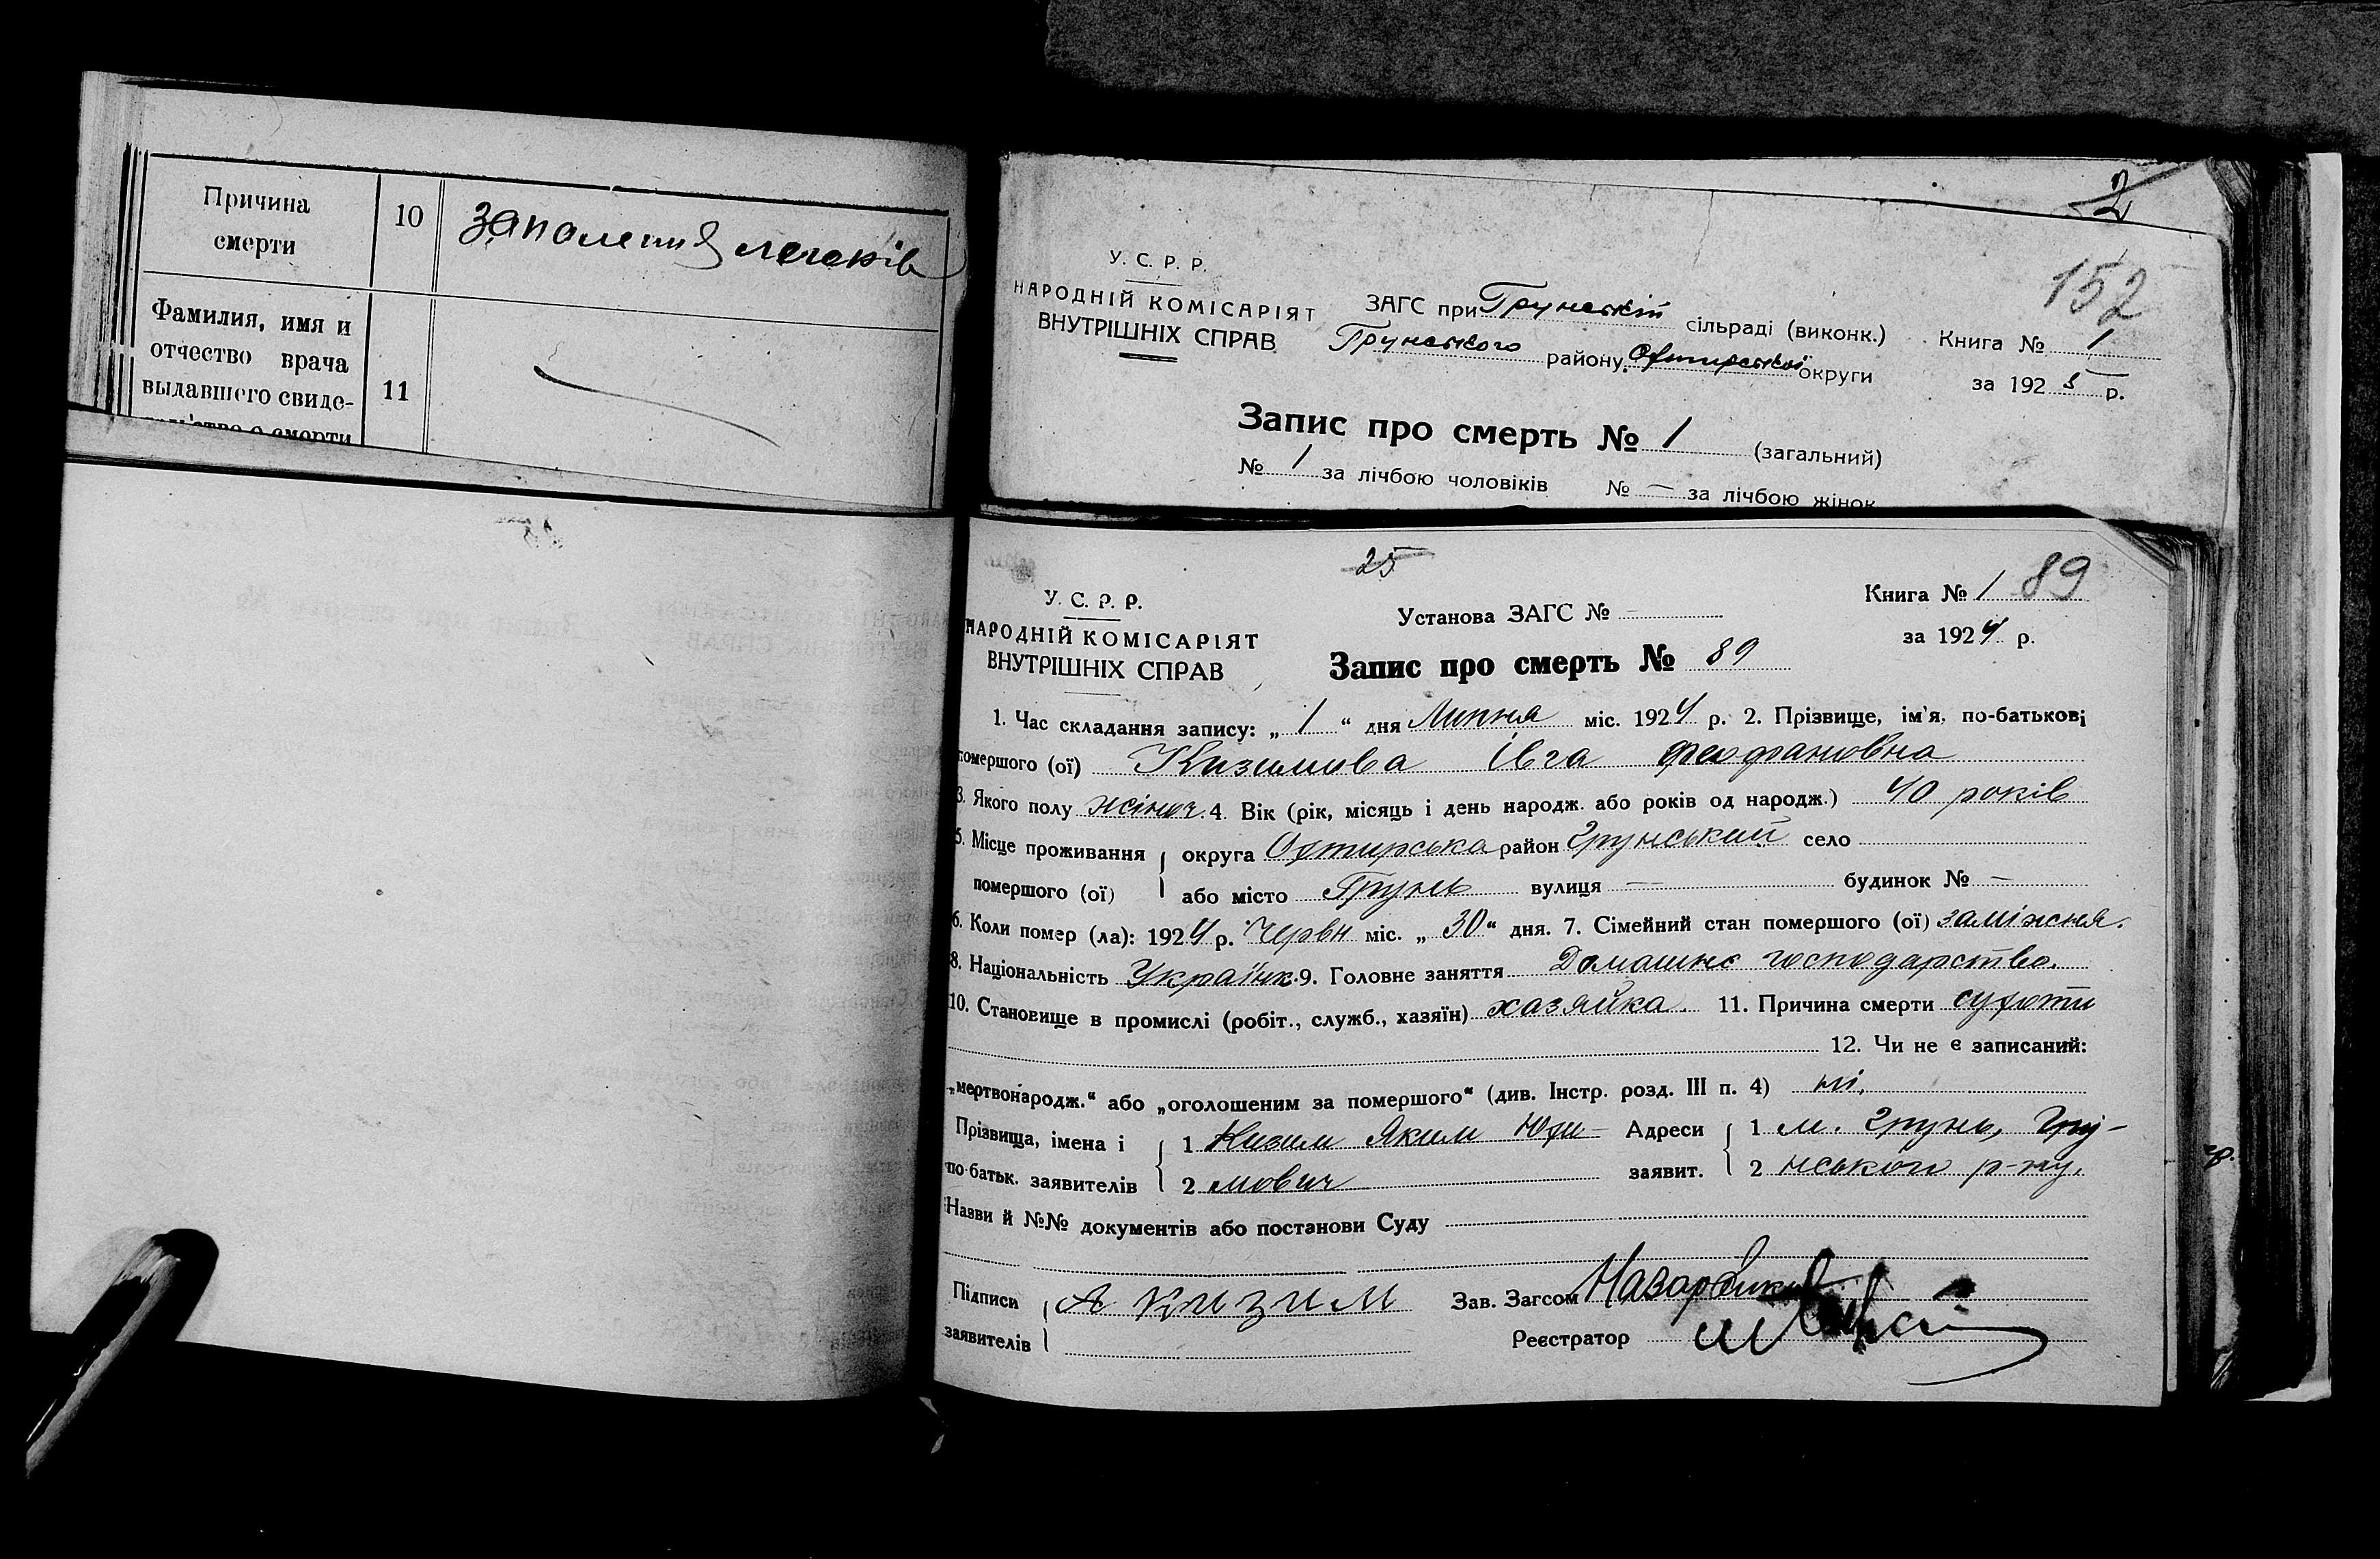 Причина
смерти
10
запаления легеків
Фамилия, имя и
отчество врача
выдавшего свиде-
11
2
152
У. С. Р. Р.
НАРОДНІЙ КОМІСАРІЯТ
ВНУТРІШНІХ СПРАВ
ЗАГС при Грунській сільраді (виконк.)
Грунського району Охтирської округи
Книга № 1
за 1925 р.
Запис про смерть № 1 (загальний)
№ 1 за лічбою чоловіків № — за лічбою жінок
25
У. С. Р. Р.
НАРОДНІЙ КОМІСАРІЯТ
ВНУТРІШНІХ СПРАВ
Установа ЗАГС № —
Книга № 1 89
за 1924 р.
Запис про смерть № 89
1. Час складання запису: „ 1 “ дня Липня міс. 1924 р. 2. Прізвище, ім'я, по-батькові
помершого (ої) Кизимова Івга Феофановна
3. Якого полу жіноч. 4. Вік (рік, місяць і день народж. або років од народж.) 40 років
5. Місце проживання округа Охтирська район Грунський село
помершого (ої) або місто Грунь вулиця — будинок № —
6. Коли помер (ла): 1924 р. Червн міс. „ 30 “ дня. 7. Сімейний стан помершого (ої) заміжня.
8. Національність Українк. 9. Головне заняття Домашнє господарство.
10. Становище в промислі (робіт., служб., хазяїн) хазяйка. 11. Причина смерти сухоти
12. Чи не є записаний:
„мертвонародж.“ або „оголошеним за помершого“ (див. Інстр. розд. III п. 4) ні.
Прізвища, імена і 1 Кизим Яким Юхи- Адреси 1 м. Грунь, Гру-
по-батьк. заявителів 2 мович заявит. 2 нського р-ну.
Назви й №№ документів або постанови Суду
Підписи А Кизим Зав. Загсом
заявителів Реєстратор